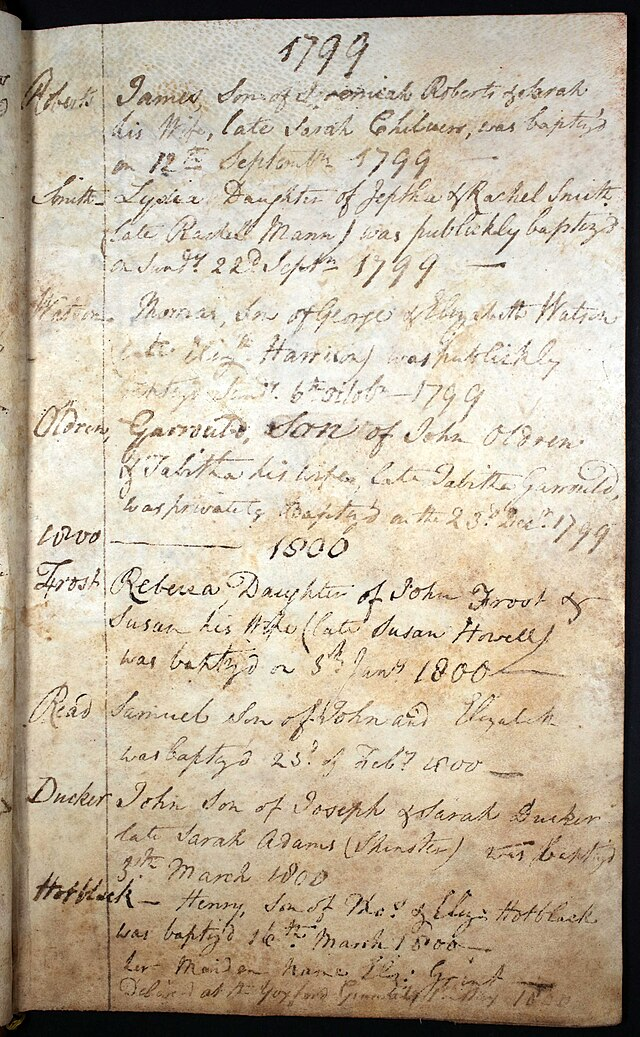 1799
Roberts James, Son of Jeremiah Roberts & Sarah
his Wife, late Sarah Chilvers, was baptyd
on 12th Septembr 1799
Smith Lydia Daughter of Jeptha & Rachel Smith,
(late Rachel Mann) was publickly baptyz'd
on Sundy 22d Septbr 1799
Watson Thomas, Son of George & Elizabeth Watson
late Elizth Harrison) was publickly
baptyz'd Sundy. 6th Octobr 1799
Oldren, Garrould, Son of John Oldren
& Tabitha his wife, late Tabitha Garrould,
was privately Baptyz'd on the 23d Decr. 1799
1800 1800
Frost Rebecca Daughter of John Frost &
Susan his Wife (late Susan Howell)
was baptyd on 5th Jany 1800
Read Samuel Son of John and Elizabeth
was baptyd 23d of Feby 1800
Ducker John Son of Joseph & Sarah Ducker
late Sarah Adams (Spinster) was baptyd
9th March 1800
Hotblack Henry, Son of Thos. & Eliz: Hotblack
was baptyd 16th March 1800
her Maiden Name Eliz:
at the Yoxford 1800